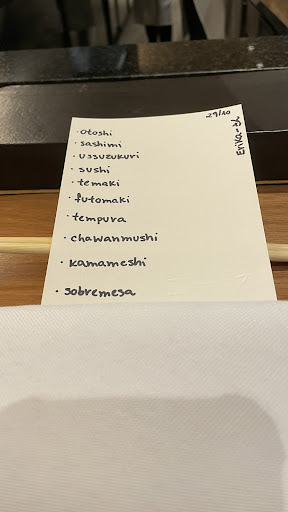 29/10
Erika-sh
· otoshi
· sashimi
· usuzukuri
· sushi
· temaki
· futomaki
· tempura
· chawanmushi
· kamameshi
· sobremesa